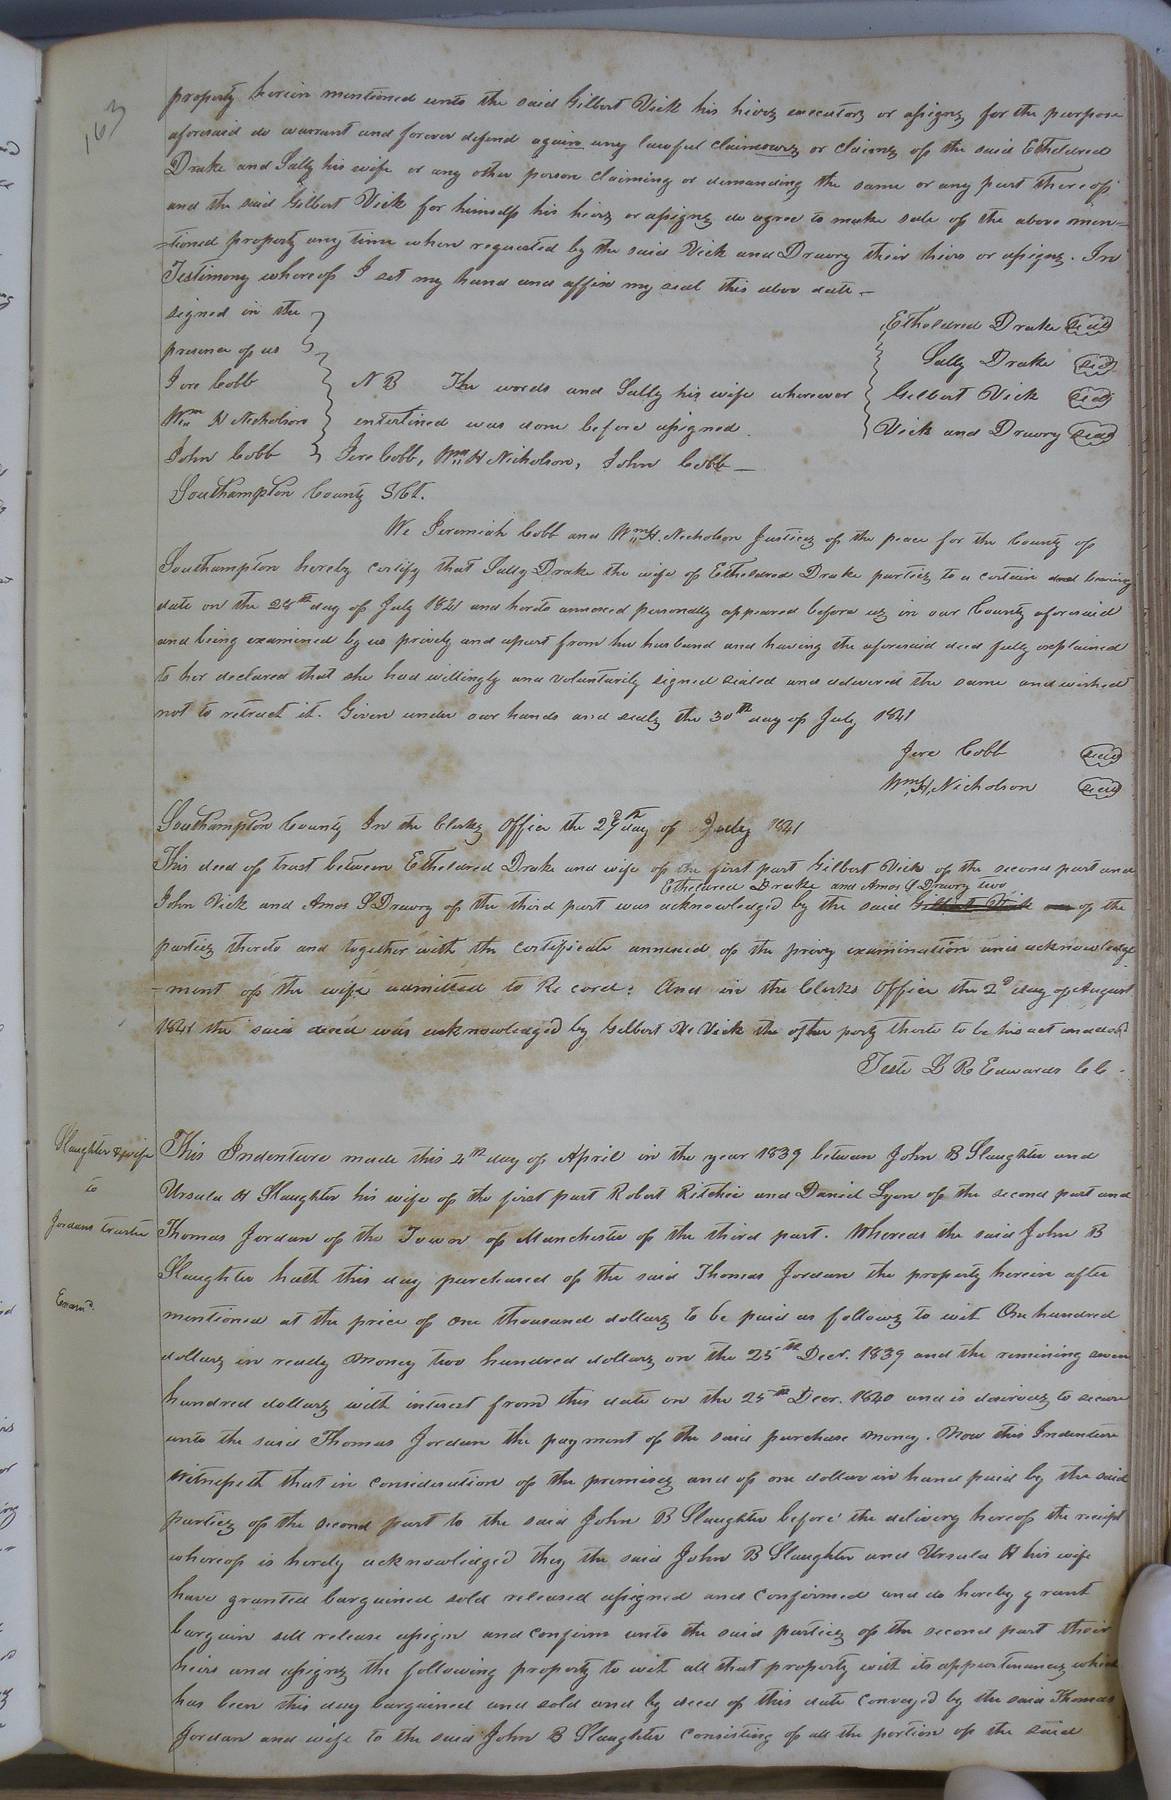 163
property herein mentioned unto the said Gilbert Vick his hiers executors or assigns for the purpose
aforesaid do warrant and forever defend again any lawful claimours or claims of the said Etheldred
Drake and Sally his wife or any other person claiming or demanding the same or any part thereof
and the said Gilbert Vick for himself his heirs or assigns do agree to make sale of the above men=
=tioned property any time when requested by the said Vick and Drewry their heirs or assigns. In
Testimony whereof I set my hand and affix my seal this abov date —
signed in the
presence of us
Jere Cobb
Wm H Nicholson
John Cobb
NB The words and Sally his wife wherever
enterlined was done before assigned.
Jere Cobb, Wm H Nicholson, John Cobb —
Etheldred Drake seal
Sally Drake seal
Gilbert Vick seal
Vick and Drewry seal
Southampton County Sct.
We Jeremiah Cobb and Wm H. Nicholson Justices of the peace for the County of
Southampton hereby certify that Sally Drake the wife of Etheldred Drake parties to a certain deed bearing
date on the 28th day of July 1841 and hereto annexed personally appeared before us in our County aforesaid
and being examined by us privily and apart from her husband and having the aforesaid deed fully explained
to her declared that she had willingly and voluntarily signed sealed and delivered the same and wished
not to retract it. Given under our hands and seals the 30th day of July 1841
Jere Cobb seal
Wm H. Nicholson seal
Southampton County In the Clerks Office the 29th day of July 1841
This deed of trust between Etheldred Drake and wife of the first part Gilbert Vick of the second part and
Etheldred Drake and Amos S Drewry two
John Vick and Amos S Drewry of the third part was acknowledged by the said Gilbert Vick one of the
parties thereto and together with the certificate annexed of the privy examination and acknowledge
=ment of the wife admitted to Record: And in the Clerks Office the 2d day of August
1841 the said deed was acknowledged by Gilbert W Vick the other party thereto to be his act and deed
Teste L R Edwards CC -
Slaughter & wife
to
Jordans trustee
Examd.
This Indenture made this 4th day of April in the year 1839 between John B Slaughter and
Ursula H Slaughter his wife of the first part Robert Ritchie and Daniel Lyon of the second part and
Thomas Jordan of the Town of Manchester of the third part. Whereas the said John B
Slaughter hath this day purchased of the said Thomas Jordan the property herein after
mentioned at the price of one thousand dollars to be paid as follows to wit One hundred
dollars in ready money two hundred dollars on the 25th Decr. 1839 and the remining seven
hundred dollars with interest from this date on the 25th Decr. 1840 and is desirous to secure
unto the said Thomas Jordan the payment of the said purchase money. Now this Indenture
witnesseth that in consideration of the premises and of one dollar in hand paid by the said
parties of the second part to the said John B Slaughter before the delivery hereof the receipt
whereof is hereby acknowledged they the said John B Slaughter and Ursula H his wife
have granted bargained sold released assigned and confirmed and do hereby grant
bargain sell release assign and confirm unto the said parties of the second part their
heirs and assigns the following property to wit all that property with its appurtenances which
has been this day bargained and sold and by deed of this date conveyed by the said Thomas
Jordan and wife to the said John B Slaughter consisting of all the portion of the said